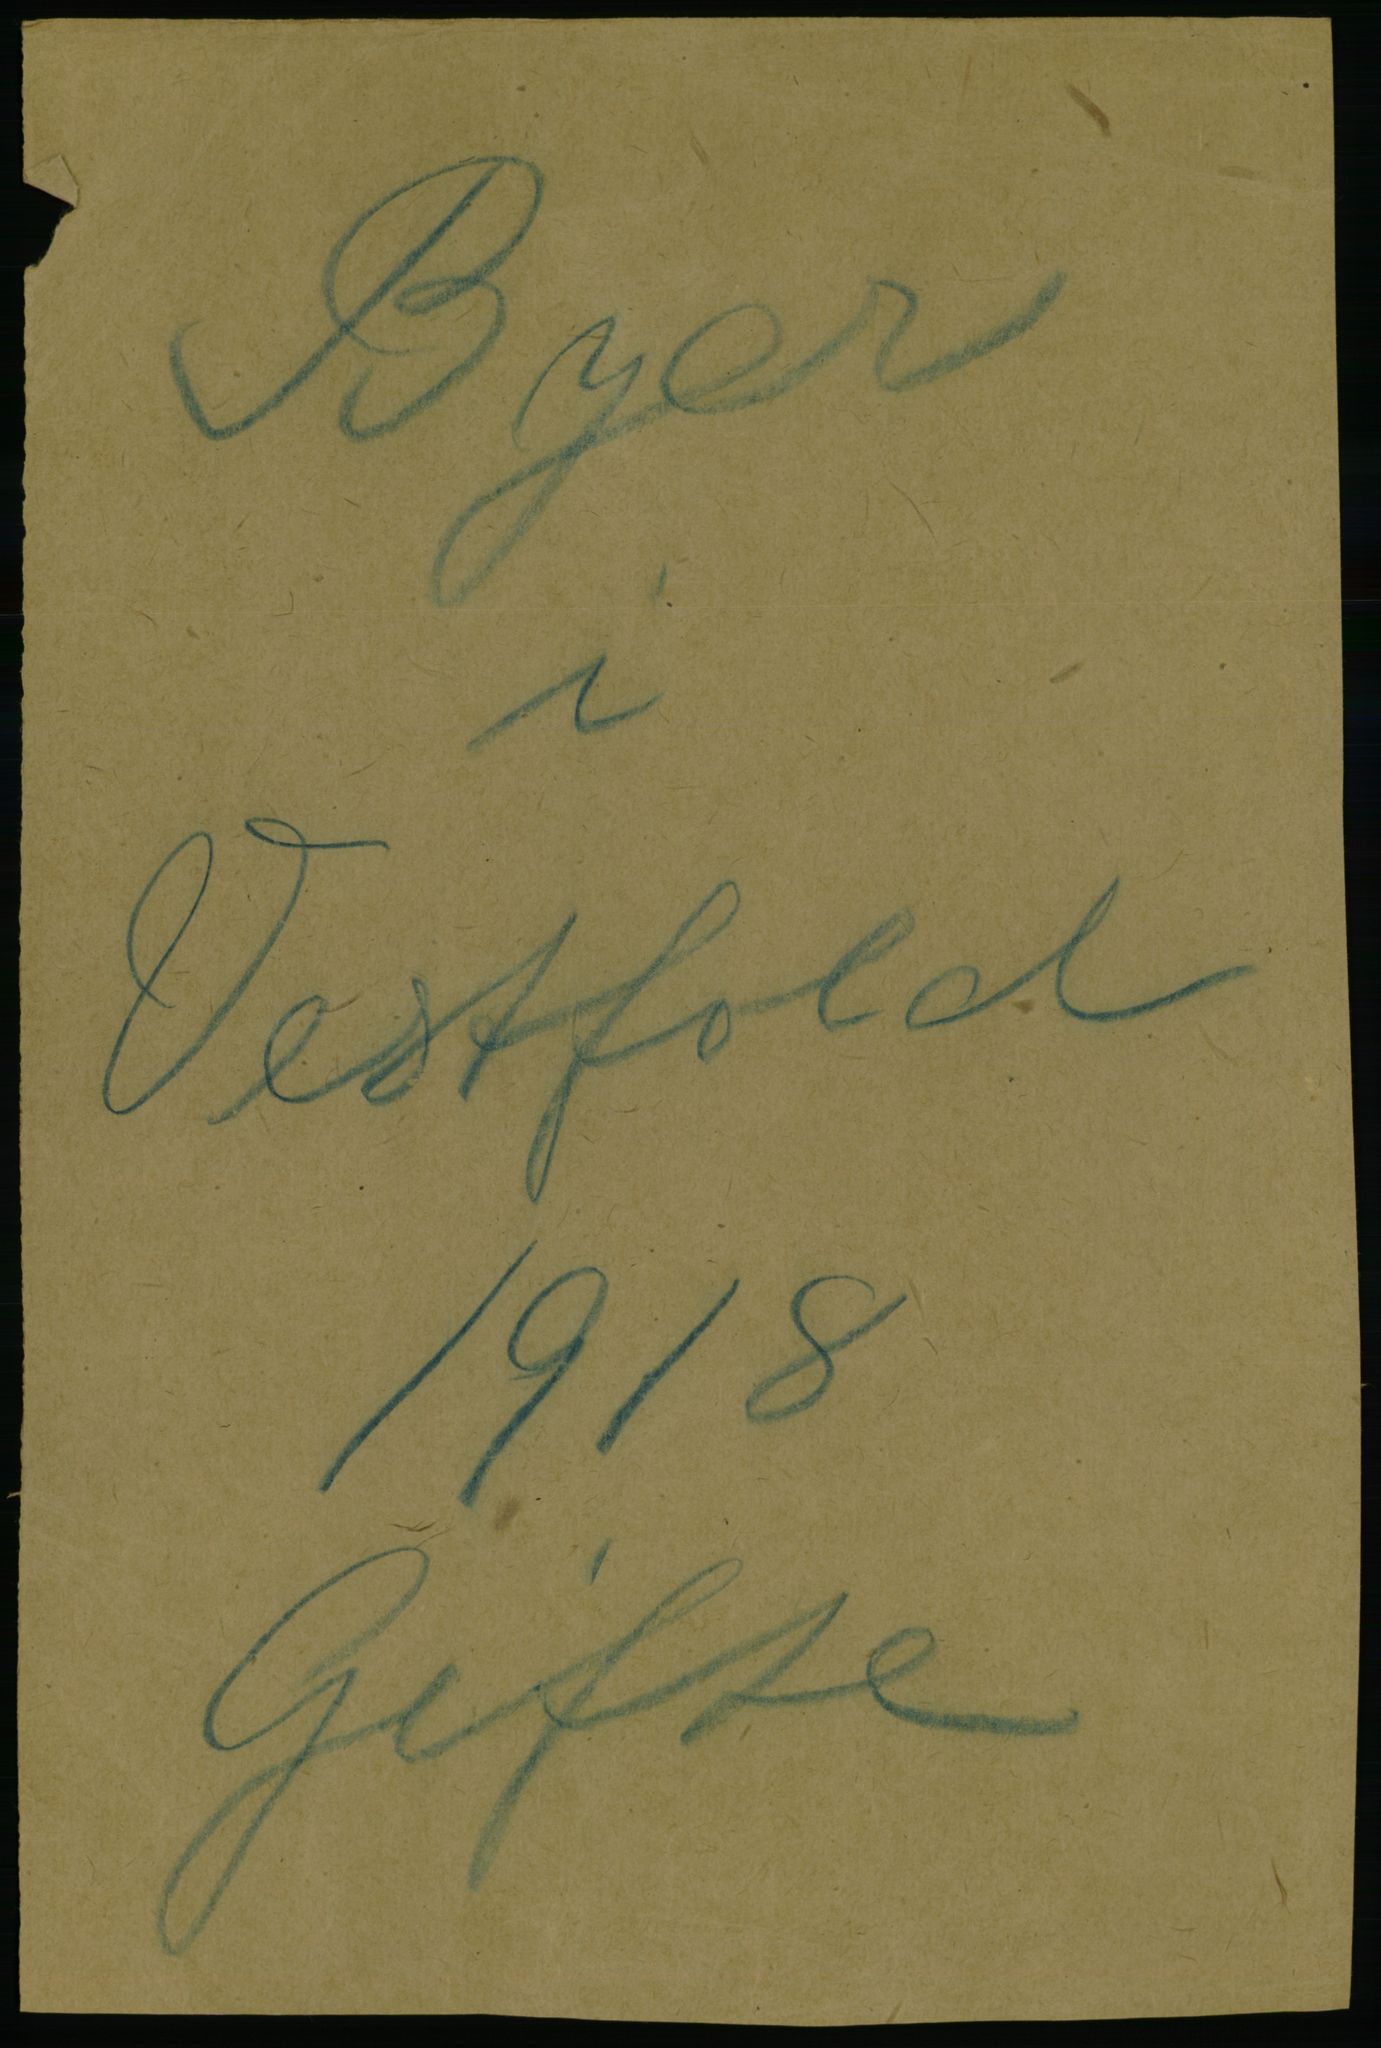 Byer
i
Vestfold
1918
Gifte